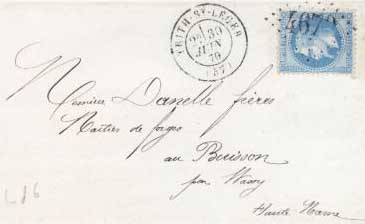 TRITH-ST-LEGER
2E 30
JUIN
70
(57)
4678
Messieurs Danelle frères
Maîtres de forges
au Buisson
par Wassy
Haute Marne